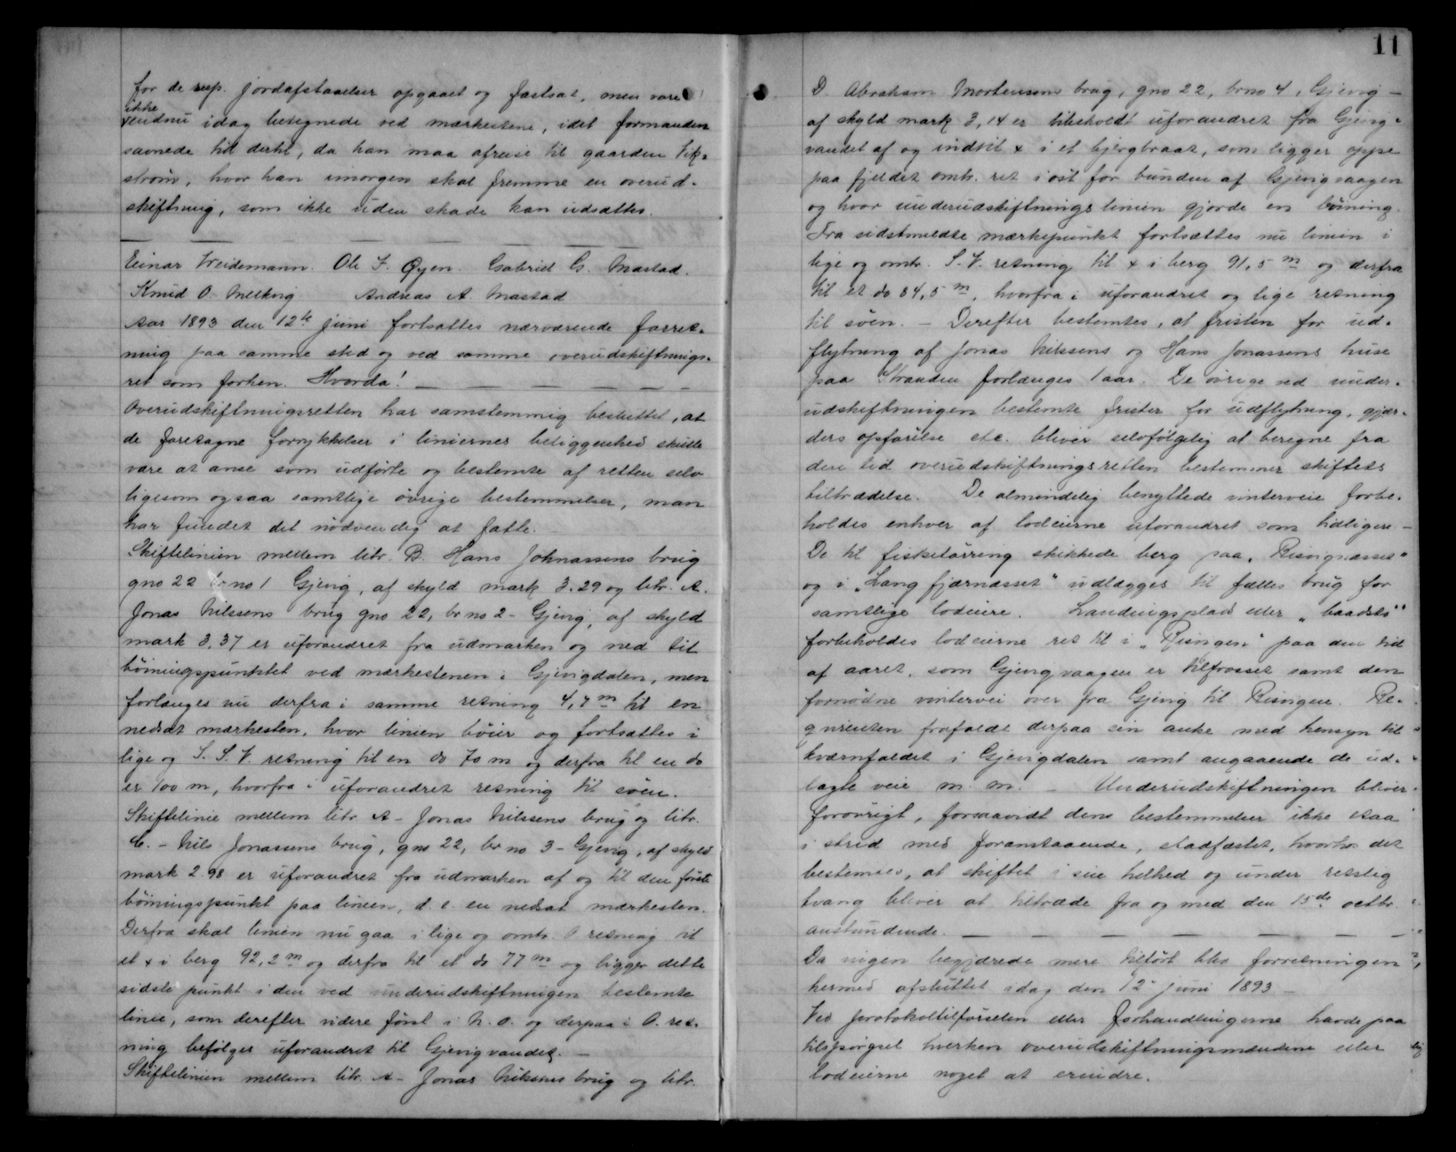 for de resp. jordafstaaelser opgaaet og fastsat, men var
ikke
endnu idag betegnede ved mærkestene, idet formanden
savnede tid dertil, da han maa afreise til gaarden Vik-
strøm, hvor han imorgen skal fremme en overud-
skiftning, som ikke uden skade kan udsættes.
Einar Weidemann. Ole I. Øyen. Gabriel G. Mastad.
Knud O. Melkvig Andreas A Mastad
Aar 1893 den 12te juni fortsattes nærværende forret-
ning paa samme sted og ved samme overudskiftnings-
ret som forhen. Hvorda!
Overudskiftningsretten har samstemmig besluttet, at
de foretagne forrykkelser i liniernes beliggenhed skulle
være at anse som udførte og bestemte af retten selv
ligesom ogsaa samtlige øvrige bestemmelser, man
har fundet det nødvendig at fatte.
Skiftelinien mellem litr. B. Hans Johnassens brug
gno 22 brno 1 Gjevig, af skyld mark 3.29 og litr. A.
Jonas Nilssens brug gno 22, br no 2 - Gjevig, af skyld
mark 3,37 er uforandret fra udmarken og ned til
bøiningspunktet ved mærkestenen i Gjevigdalen, men
forlænges nu derfra i samme retning 4,7 m til en
nedsat mærkesten, hvor linien bøier og fortsættes i
lige og S. S. V. retning til en do 70 m og derfra til en do
er 100 m, hvorfra i uforandret retning til søen.
Skiftelinie mellem litr. A - Jonas Nilssens brug og litr.
C. - Nils Jonasens brug, gno 22, br no 3 - Gjevig, af skyld
mark 2.98 er uforandret fra udmarken af og til den første
bøiningspunkt paa linien, d. e. en nedsat mærkesten.
Derfra skal linien nu gaa i lige og omtr. O retning til
et x i berg 92,2 m og derfra til et do 77 m og ligger dette
sidste punkt i den ved underudskiftningen bestemte
linie, som derefter videre først i N. O. og derpaa i O. ret-
ning befølges uforandret til Gjevigvandet. -
Skiftelinien mellem litr. A - Jonas Nilsens brug og litr.
11
D. Abraham Mortensens brug, gno 22, br no 4, Gjevig -
af skyld mark 3,14 er bibeholdt uforandret fra Gjevig-
vandet af og indtil x i et bjergbraat, som ligger oppe
paa fjeldet omtr. ret i øst for bunden af Gjevigvaagen
og hvor underudskiftningslinien gjorde en bøining.
Fra sidstmeldte mærkepunkt fortsættes nu linien i
lige og omtr. S. V. retning til x i berg 91,5 m og derfra
til et do 84,5 m, hvorfra i uforandret og lige retning
til søen. - Derefter bestemtes, at fristen for ud-
flytning af Jonas Nilssens og Hans Jonassens huse
paa Stranden forlænges 1 aar. De øvrige ved under-
udskiftningen bestemte frister for udflytning, gjær-
ders opførelse etc. bliver selvfølgelig at beregne fra
den tid overudskiftningsretten bestemmer skiftets
tiltrædelse. De almindelig benyttede vinterveie forbe-
holdes enhver af lodeierne uforandret som tidligere -
De til fisketørring skikkede berg paa "Risvignæsset"
og i "Langfjærnæsset" udlægges til fælles brug for
samtlige lodeiere. Landingsplads eller "baadstø"
forbeholdes lodeierne ret til i "Risingen" paa den tid
af aaret, som Gjevigvaagen er tilfrosset samt den
fornødne vintervei over fra Gjevig til Risingen. Re-
quirenten frafaldt derpaa sin anke med hensyn til
kværnfaldet i Gjevigdalen samt angaaende de ud-
lagte veie m. m. - Underudskiftningen bliver
forøvrigt, forsaavidt dens bestemmelser ikke staa
i strid med foranstaaende, stadfæstet, hvorhos det
bestemmes, at skiftet i sin helhed og under retslig
tvang bliver at tiltræde fra og med den 15de octbr.
anstundende.
Da ingen begjærede mere tilført blev forretningen
hermed afsluttet idag den 12 juni 1893 -
Ved protokoltilførselen eller forhandlingerne havde paa
tilspørgsel hverken overudskiftningsmændene eller
lodeierne noget at erindre.